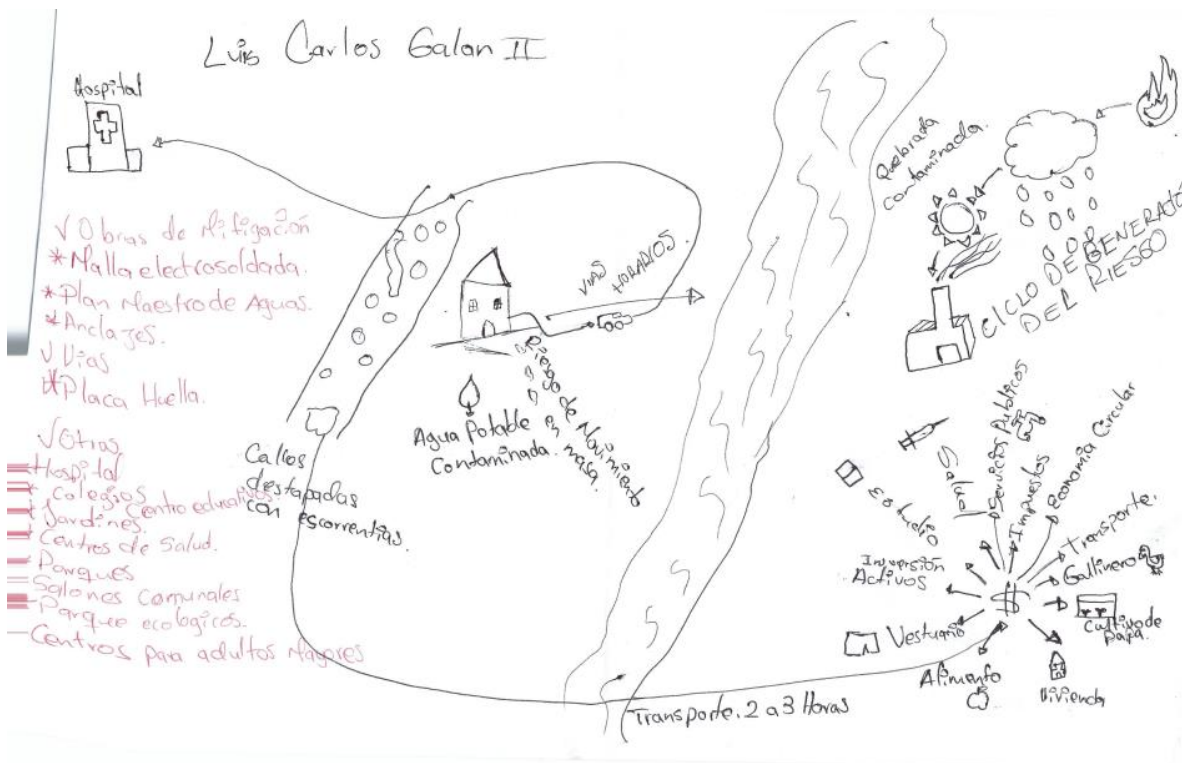 Luis Carlos Galan II
Hospital
√ Obras de Mitigación
* Malla electrosoldada.
* Plan Maestro de Aguas.
* Anclajes.
√ Vias
* Placa Huella.
√ Otras
Hospital
* Colegios Centro educativos
* Jardines.
Centros de Salud.
Parques
Salones Comunales
Parque ecologicos.
Centros para adultos Mayores
Calles
destapadas
con escorrentias.
VIAS
HORARIOS.
Agua Potable
Contaminada.
Riesgo de Movimiento
en masa.
Quebrada
contaminada.
CICLO DE GENERATO
DEL RIESGO
Estudio
Salud
Servicios Publicos
Impuestos
Economia Circular
Transporte.
Gallinero
Cultivo de
papa.
Vivienda
Alimento
Vestuario
Inversión
Activos
$
Transporte. 2 a 3 Horas